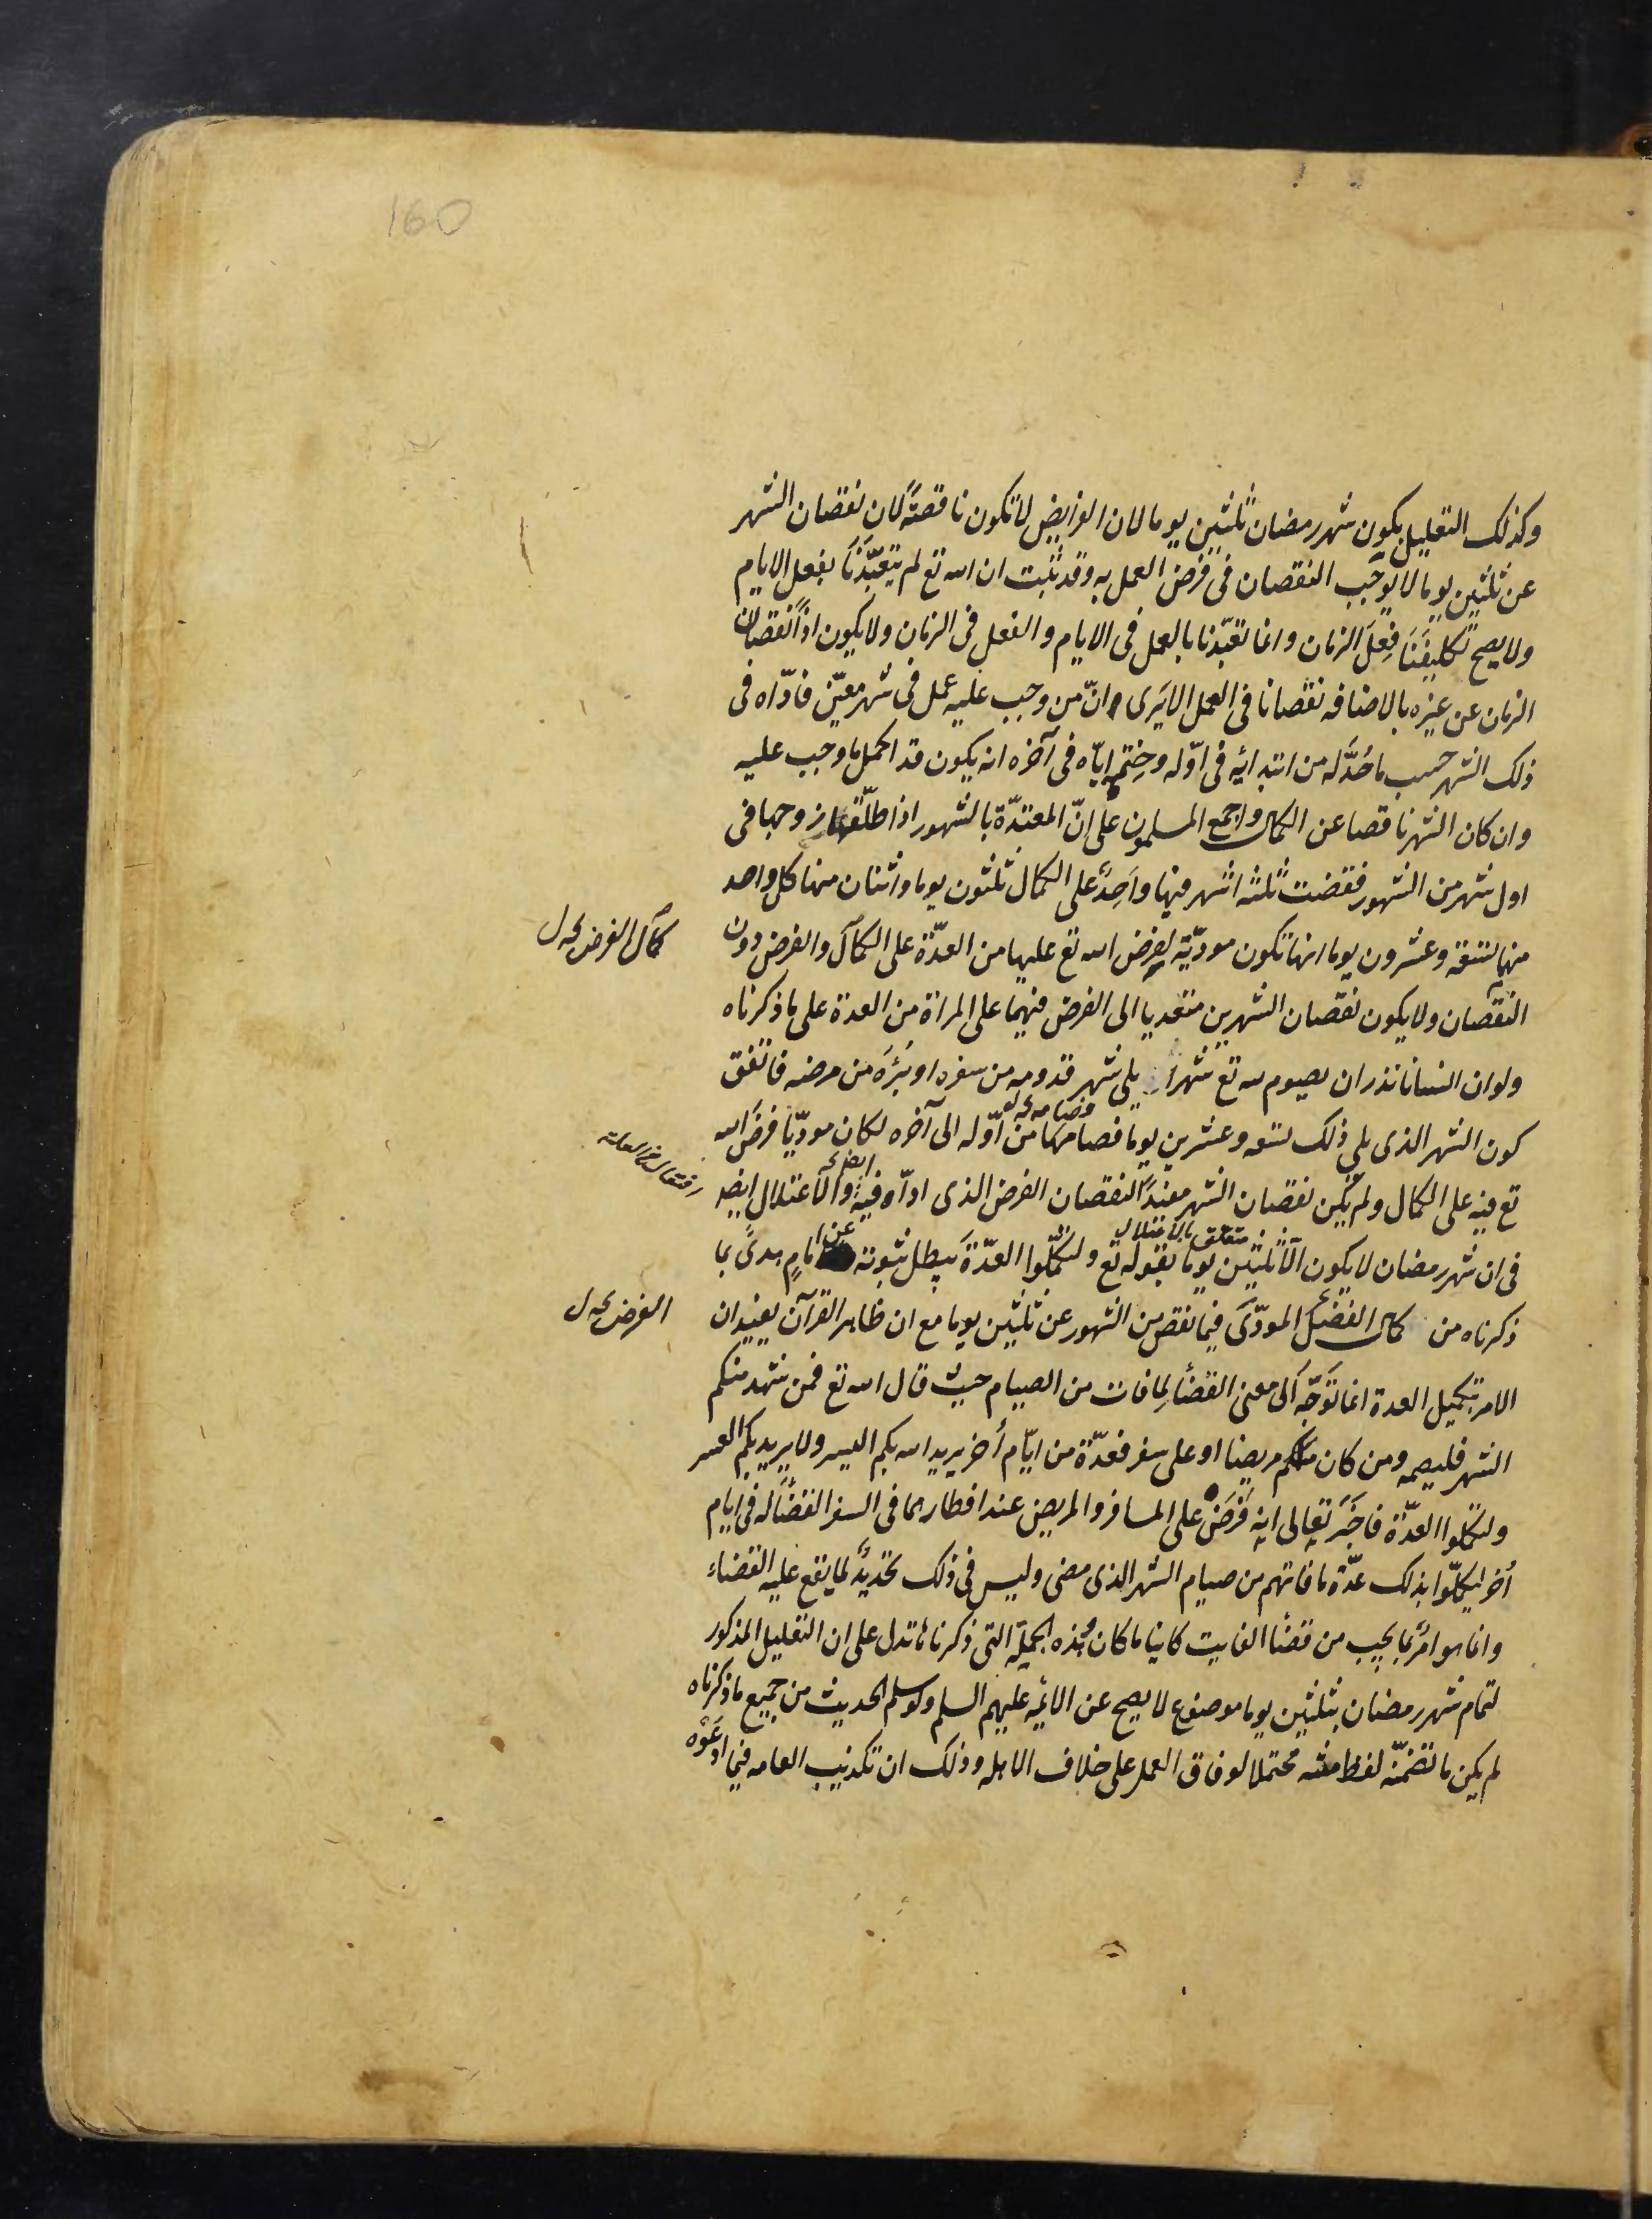 160
وكذلك التعليل بكون شهر رمضان ثلثين يوما لان الفرايض لا تكون ناقصة لان نقصان الشهر
عن ثلثين يوما لا يوجب النقصان فى فرض العمل به وقد ثبت ان الله تع لم يتعبّدنا بفعل الايام
ولا يصح تكليفنا فعل الزمان وانما تعبّدنا بالعمل فى الايام والفعل فى الزمان ولا يكون اذاً نقصان
الزمان عن غيره بالاضافه نقصانا فى العمل الا يرى انّ من وجب عليه عمل فى شهر معيّن فادّاه فى
ذلك الشهر حسب ما حُدّ له من ابتدائه فى اوّله وختمه ايّاه فى آخره انه يكون قد اكمل ما وجب عليه
وان كان الشهر ناقصا عن الكمال واجمع المسلمون على انّ المعتدّة بالشهور اذا طلّقها زوجها فى
اول شهر من الشهور فقضت ثلثه اشهر فيها واحدٌ على الكمال ثلثون يوما واثنان منها كل واحد
منهما تسعة وعشرون يوما انها تكون مودّية لفرض الله تع عليها من العدّة على الكمال والفرض دون
كمال الفرض يحه ل
النقصان ولا يكون نقصان الشهرين متعديا الى الفرض فيهما على المراة من العدة على ما ذكرناه
ولو ان انسانا نذر ان يصوم لله تع شهرا يلى شهر قدومه من سفره او بُرئه من مرضه فاتفق
كون الشهر الذى يلى ذلك تسعه وعشرين يوما فصامها من اوّله الى آخره لكان مودّيا فرض الله
تع فيه على الكمال ولم يكن نقصان الشهر مفيدا لنقصان الفرض الذى ادّاه فيه والاعتلال ايضه
متعلق بالاعتلال
فى ان شهر رمضان لا يكون الّا ثلثين يوما بقوله تع ولتكمّلوا العدّة يبطل ثبوته عن امامِ هدىً بما
ذكرناه من كمال الفضل المودّى فيما نقص من الشهور عن ثلثين يوما مع ان ظاهر القرآن يفيد ان
الفرض يحه ل
الامر بتكميل العدة انما توجّه الى معنى القضاء لِما فات من الصيام حيث قال الله تع فمن شهد منكم
الشهر فليصمه ومن كان منكم مريضا او على سفر فعدّة من ايّام أُخر يريد الله بكم اليسر ولا يريد بكم العسر
ولتكملوا العدّة فاخبر تعالى انه فرض على المسافر والمريض عند افطارهما فى السفر القضاء له فى ايام
أُخر ليكمّلوا بذلك عدّة ما فاتهم من صيام الشهر الذى مضى وليس فى ذلك تحديد لما يقع عليه القضاء
وانما هو امر بما يجب من قضاء الفايت كاينا ما كان وهذه الجملة التى ذكرناها تدل على ان التعليل المذكور
لتمام شهر رمضان بثلثين يوما موضوع لا يصح عن الائمه عليهم السلم ولو سلم الحديث من جميع ما ذكرناه
لم يكن ما تضمّنه لفظ متنه محتملا لوفاق العمل على خلاف الاهله وذلك ان تكذيب العامه فيما ادعَوْه